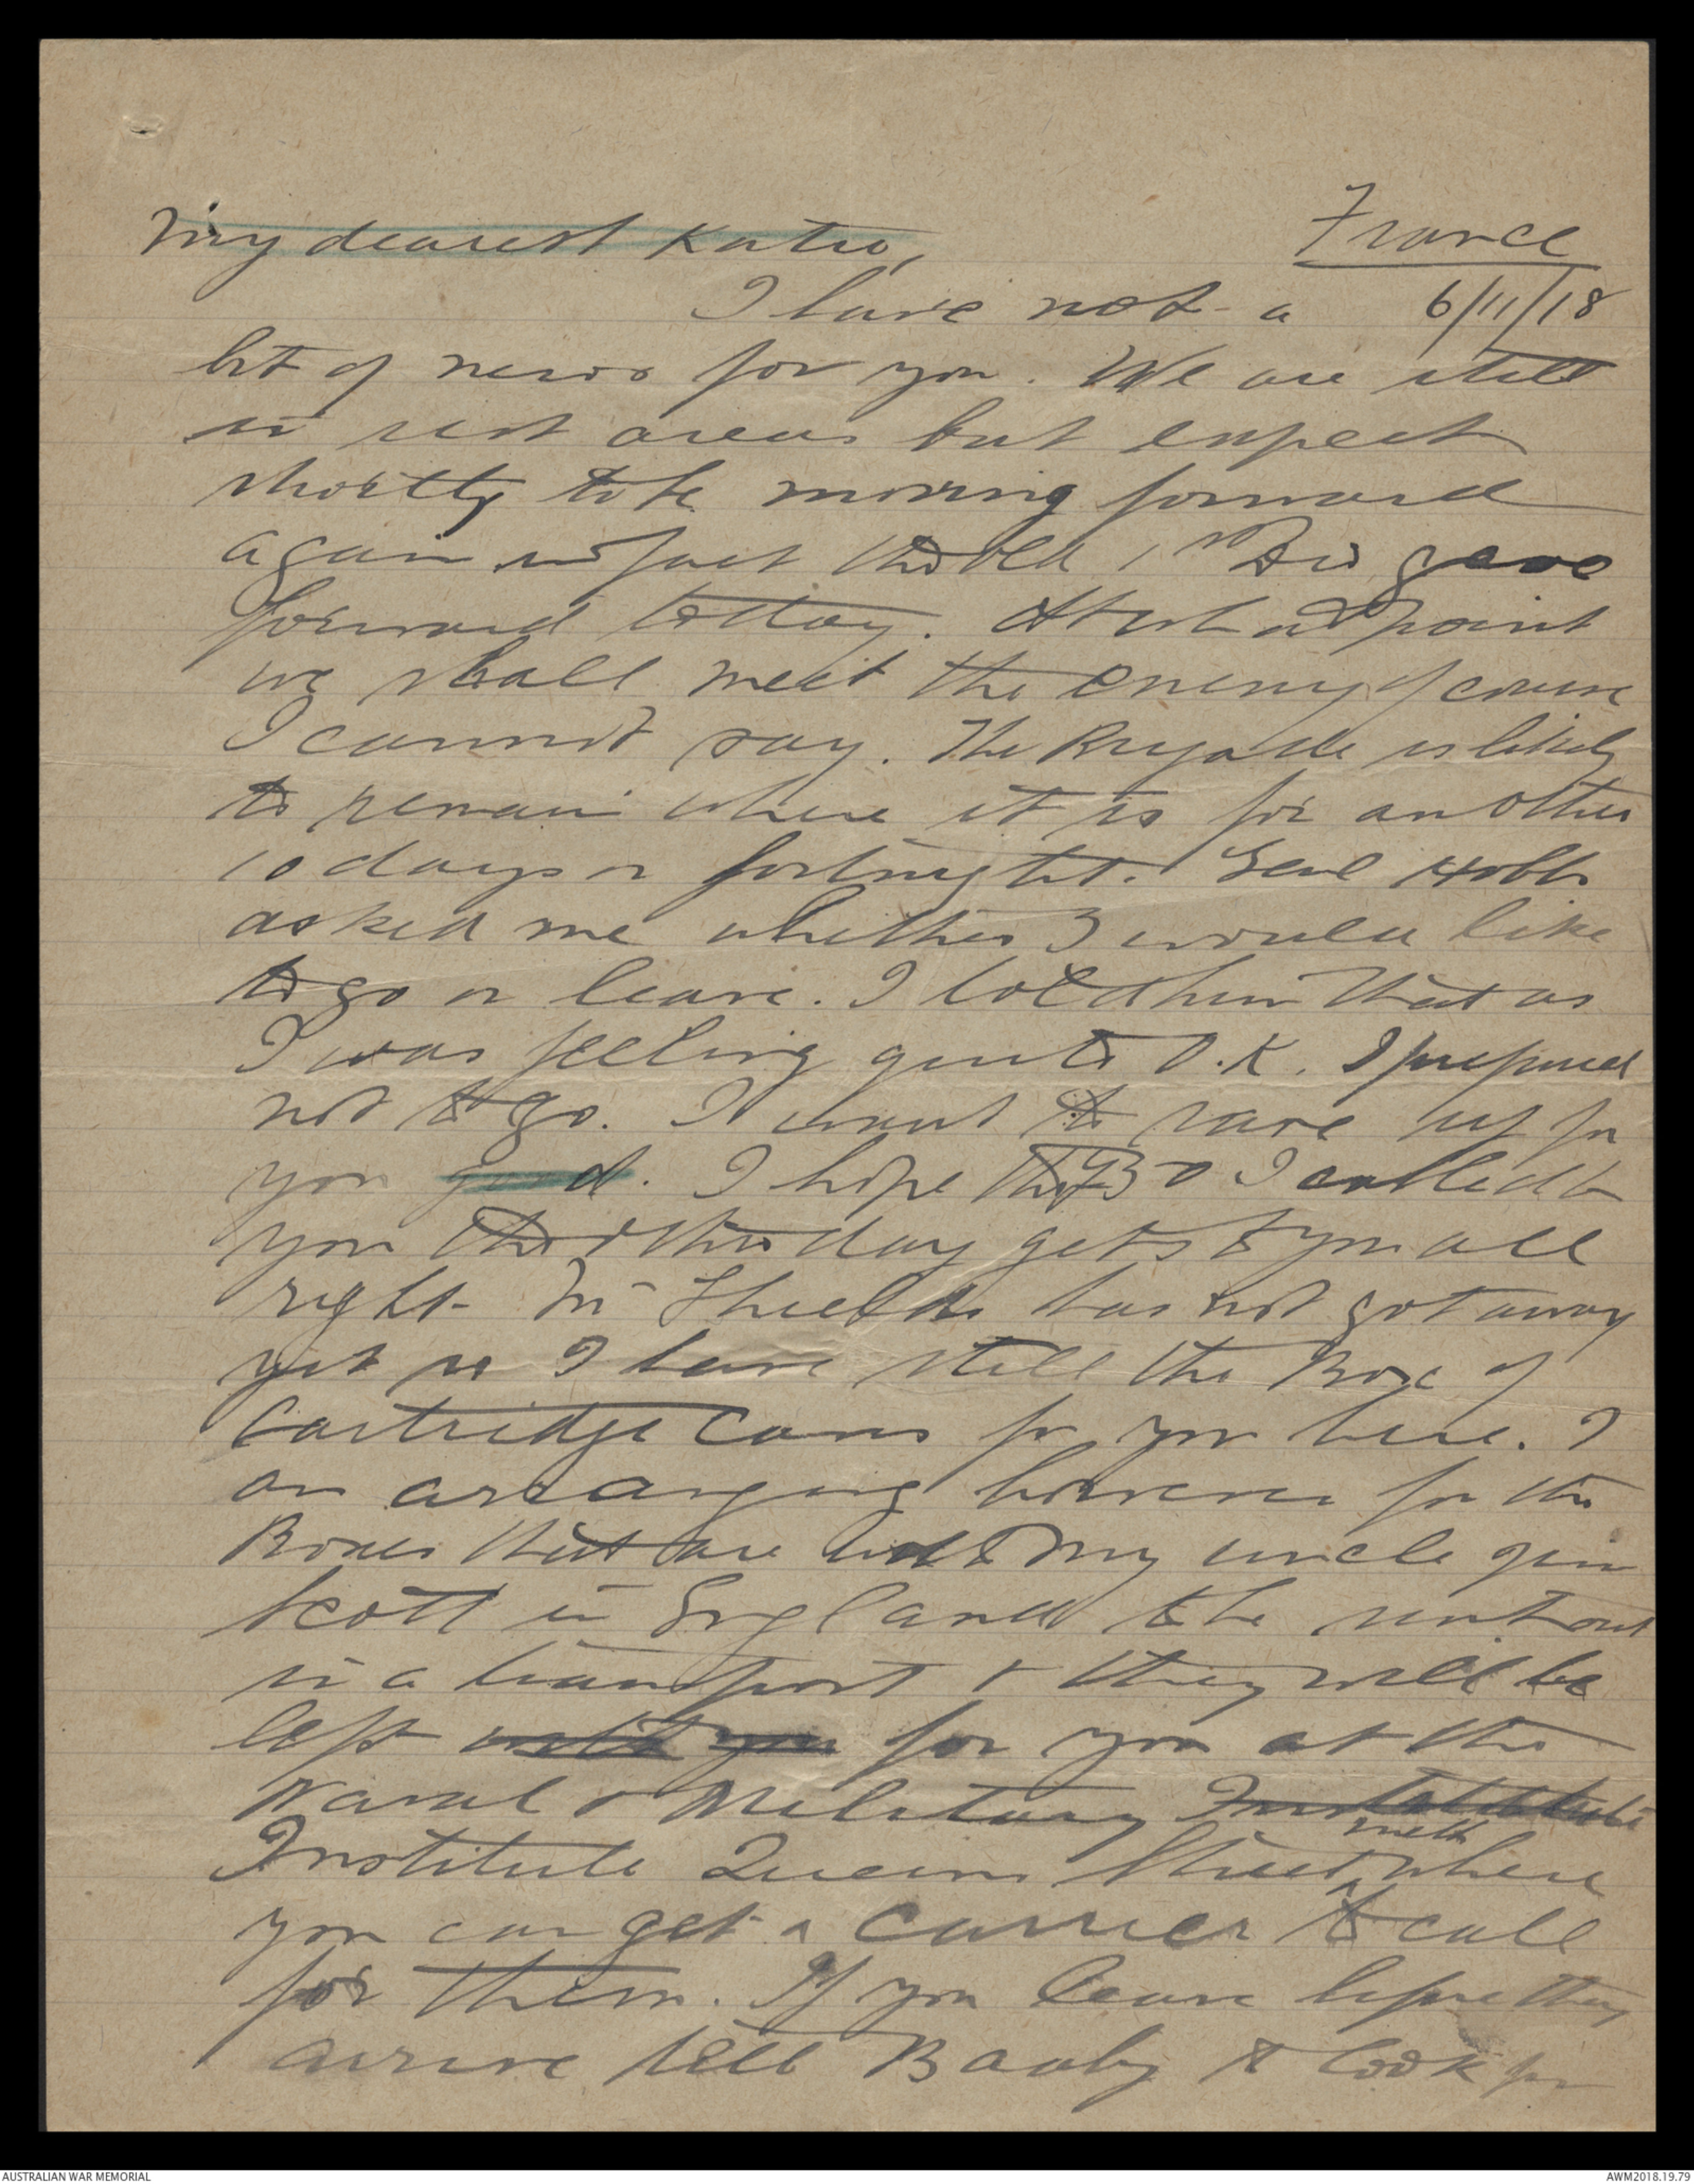 My dearest Katie,
France
6/11/18
I have not a
bit of news for you. We are still
in rest areas but expect
shortly to be moving forward
again in fact the old 1st Div gone
forward today. At what point
we shall meet the enemy of course
I cannot say. The Brigade is likely
to remain where it is for another
10 days or fortnight. Genl Hobbs
asked me whether I would like
to go on leave. I told him that as
I was feeling quite O.K. I prefered
not to go. I want to save up for
you good. I hope the £30 I cabled to
you the other day gets to you all
right. Mr Shields has not got away
yet so I have still the Box of
Cartridge Cases for you here. I
am arranging however for the
Boxes that are with my uncle Jim
Scott in England to be sent out
in a transport & they will be
left with you for you at the
Naval & Military
Institute Queens Street melb where
you can get a carrier to call
for them. If you leave before they
arrive tell Baaby to look for
AUSTRALIAN WAR MEMORIAL
AWM2018.19.79